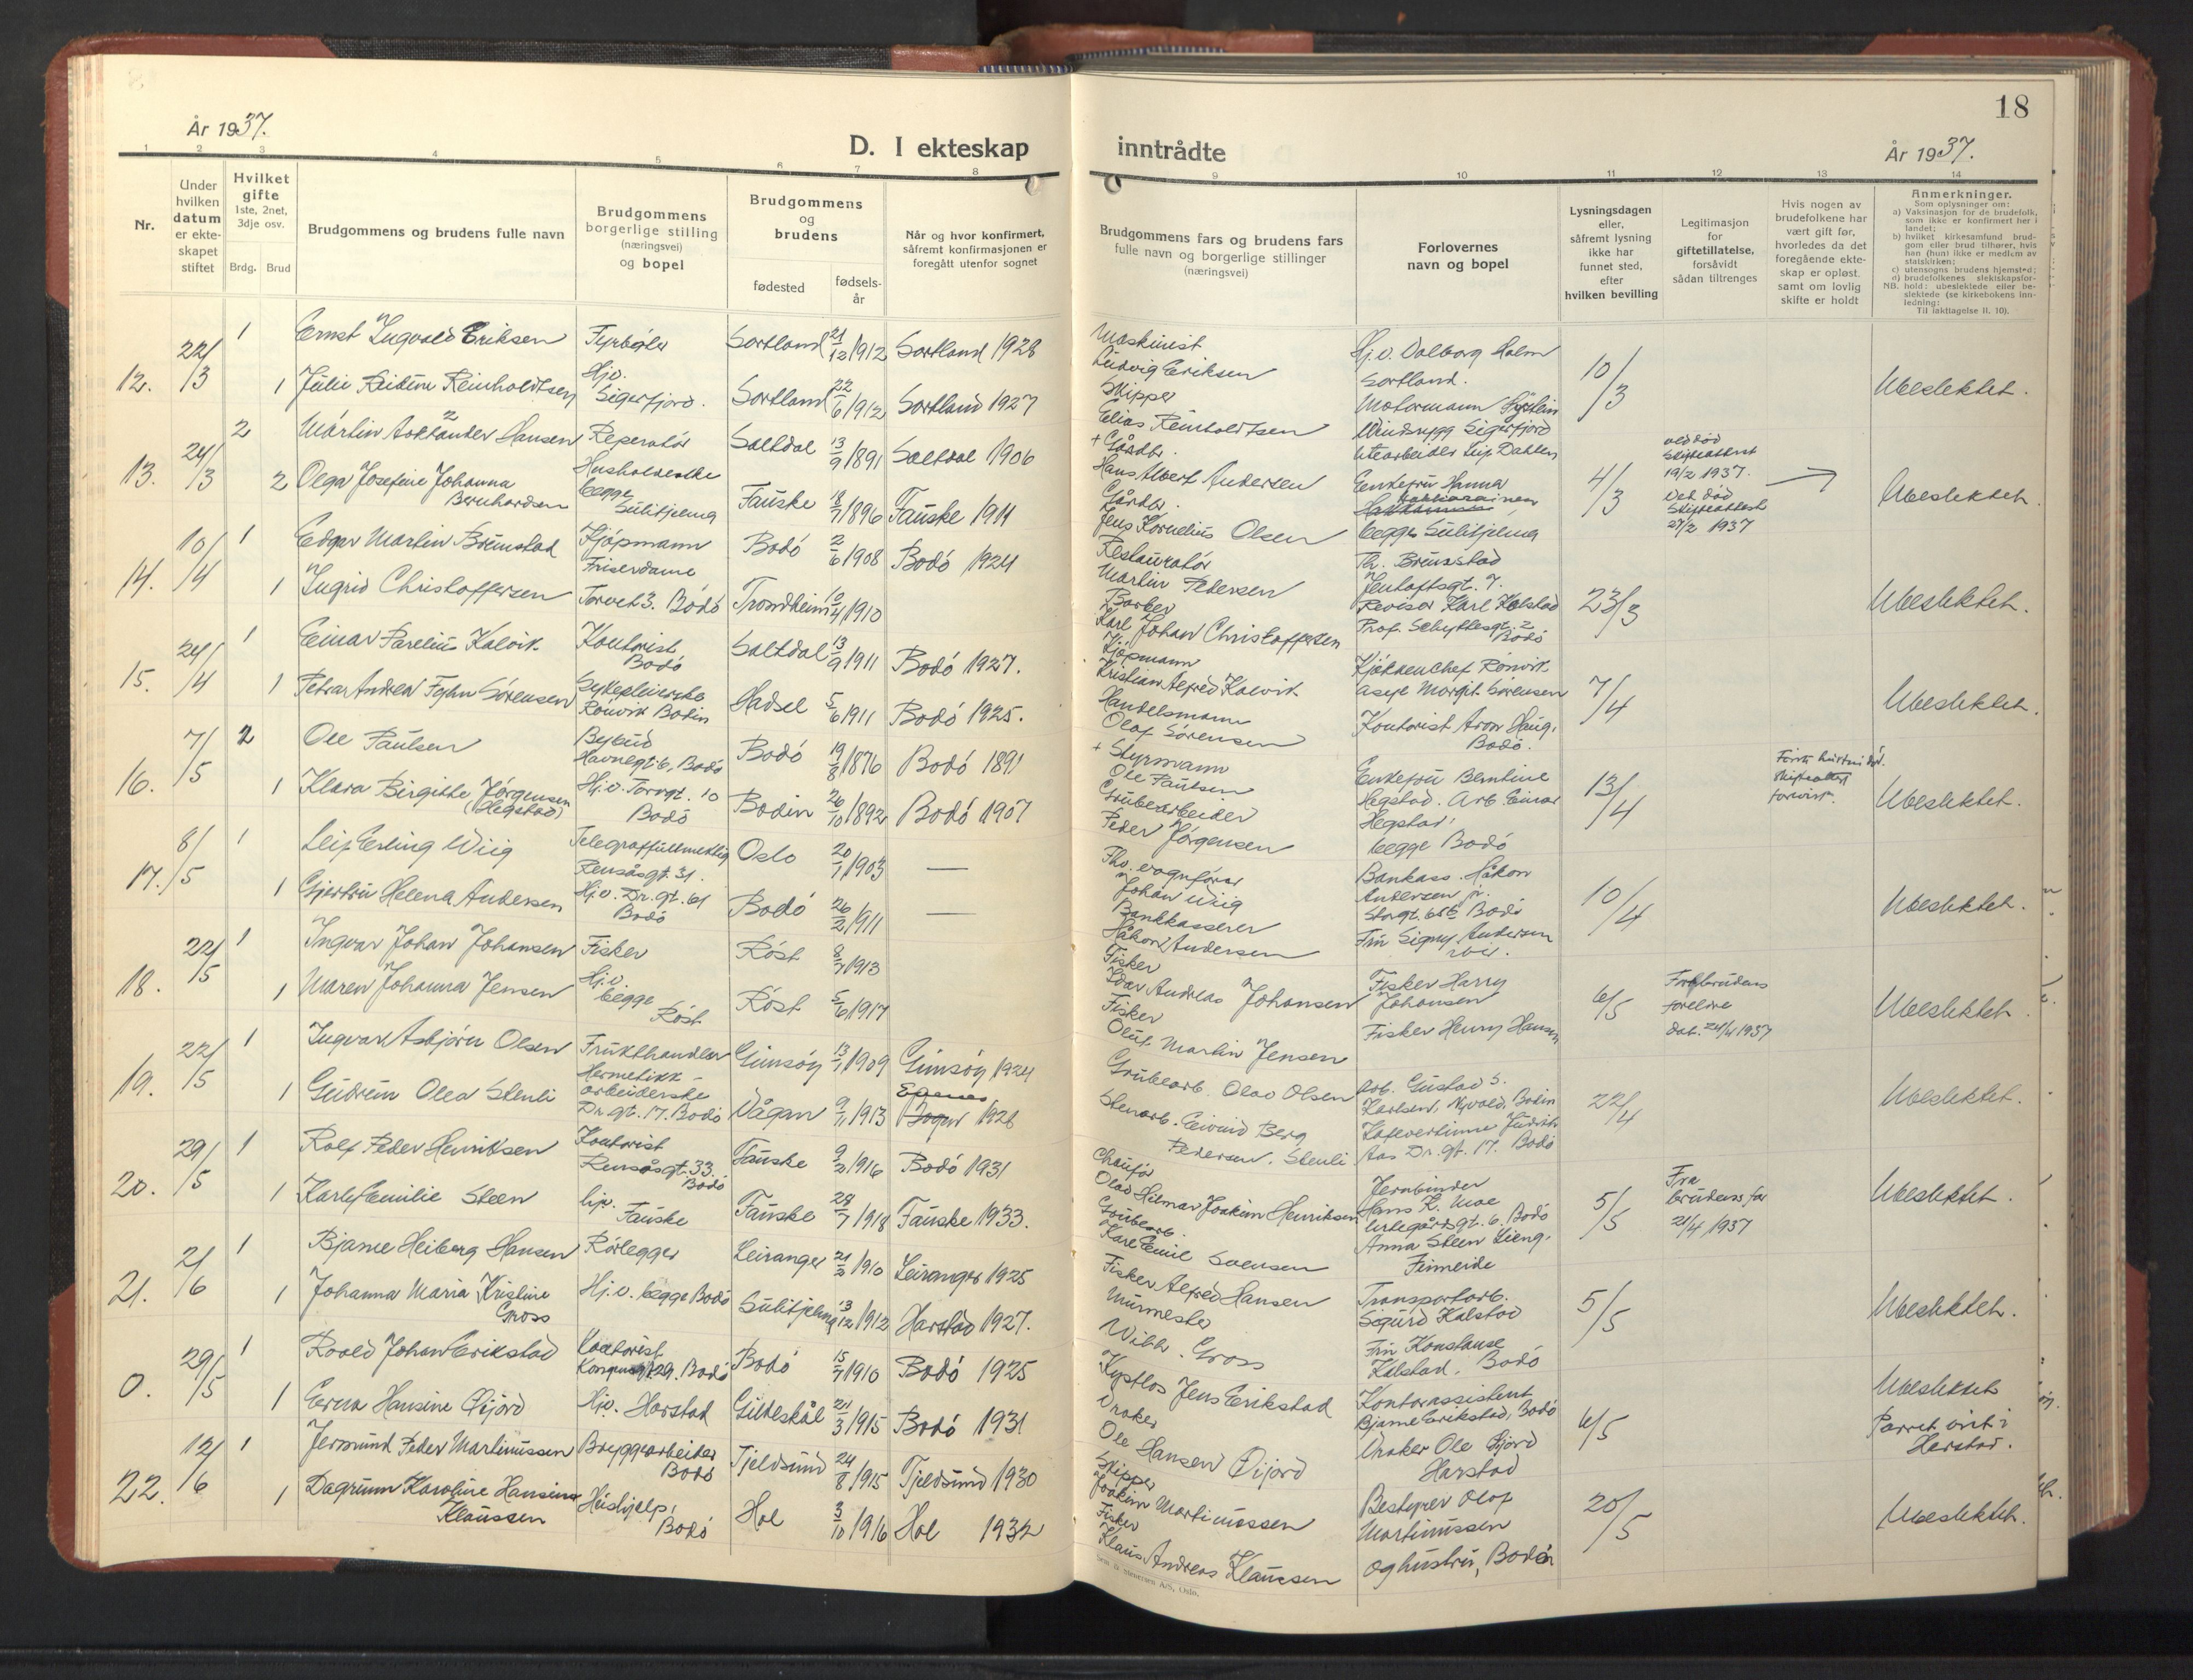 18
År 1937.
D. I ekteskap inntrådte
År 1937.
1 2 3 4 5 6 7 8 9 10 11 12 13 14
Nr.
Under hvilken datum er ekteskapet stiftet
Hvilket gifte
1ste, 2net, 3dje osv.
Brdg. Brud
Brudgommens og brudens fulle navn
Brudgommens borgerlige stilling (næringsvei) og bopel
Brudgommens og brudens
fødested
fødselsår
Når og hvor konfirmert, såfremt konfirmasjonen er foregått utenfor sognet
Brudgommens fars og brudens fars fulle navn og borgerlige stillinger (næringsvei)
Forlovernes navn og bopel
Lysningsdagen eller, såfremt lysning ikke har funnet sted, efter hvilken bevilling
Legitimasjon for giftetillatelse, forsåvidt sådan tiltrenges
Hvis nogen av brudefolkene har vært gift før, hvorledes da det foregående ekteskap er opløst. samt om lovlig skifte er holdt
Anmerkninger.
Som oplysninger om:
a) Vaksinasjon for de brudefolk, som ikke er konfirmert her i landet;
b) hvilket kirkesamfund brudgom eller brud tilhører, hvis han (hun) ikke er medlem av statskirken;
c) utensogns brudens hjemsted;
d) brudefolkenes slektskapsforhold: ubeslektede eller beslektede (se kirkebokens innledning:
Til iakttagelse II. 10).
12. 22/3 1 Ernst Ingvald Eriksen Fyrbøter Sortland 21/12 1912 Sortland 1928
1 Julie Reinholdtsen Hjv. Sigerfjord. Sortland 22/6 1912 Sortland 1927
Maskinist Ludvig Eriksen
Skipper Elias Reinholdtsen
Hj.v. Valborg Holm Sortland.
Motormann Sigerfjord
10/3 Ubeslektet.
13. 24/3 2 Martin Hansen Reperatør Saltdal 13/9 1891 Saltdal 1906
2 Olga Josefine Johanna Bernhardsen begge Sulitjelma Fauske 18/7 1896 Fauske 1911
+ Gårdbr. Hans Albert Andersen
Gårdbr. Jens Kornelius Olsen
Utearbeider Leif Dahlen
Enkefru Hanna
begge Sulitjelma
4/3
ved død skifteattest 19/2 1937.
Ved død Skifteattest 27/2 1937
Ubeslektet.
14. 10/4 1 Edgar Martin Breimstad Kjøpmann Bodø 2/6 1908 Bodø 1924
1 Ingrid Christoffersen Friserdame Torvet 3. Bodø Trondheim 10/4 1910
Restauratør Martin Petersen
Barber Karl Johan Christoffersen
Th. Breimstad Jentoftsgt. 7.
Revisor Karl Kolstad Prof. Schyttesgt. 2 Bodø
23/3 Ubeslektet.
15. 24/4 1 Einar Parelius Kalvik Kontorist Bodø Saltdal 13/9 1911 Bodø 1927.
1 Petra Andrea Sørensen Sykepleierske Rønvik Bodin Hadsel 5/6 1911 Bodø 1925.
Kjøpmann Kristian Alfred Kalvik
Handelsmann Olaf Sørensen
Kjøkkenchef Rønvik Margit Sørensen
Kontorist Aron Haug. Bodø.
7/4 Ubeslektet.
16. 7/5 2 Ole Paulsen Bybud Havnegt. 6, Bodø Bodø 19/8 1876 Bodø 1891
1 Klara Birgitte Jørgensen (Hegstad) Hj.v. Torvgt. 10 Bodø Bodin 26/10 1892 Bodø 1907
+ Styrmann Ole Paulsen
Grubearbeider Peder Jørgensen
Enkefru Berntine Hegstad. Arb. Einar Hegstad. begge Bodø
13/4
Første hustru død. skifteattest forevist.
Ubeslektet.
17. 8/5 1 Leif Erling Wiig Telegraffullmektig Rensåsgt. 31. Oslo 20/7 1903 —
1 Gjertru Helena Andersen Hj.v. Dr. gt. 61 Bodø Bodø 26/2 1911 —
Fhv. vognfører Johan Wiig
Bankkasserer Håkon Andersen
Bankass. Håkon Andersen jr. Storgt. Bodø
Fru Signy Andersen ibid.
10/4 Ubeslektet.
18. 22/5 1 Ingvar Johan Johansen Fisker Røst 8/7 1913
1 Maren Johanna Jensen Hj.v. begge Røst Røst 5/6 1917
Fisker Edvar Andreas Johansen
Fisker Oluf Martin Jensen
Fisker Harry Johansen
Fisker Henry Hansen
6/5
Fra brudens foreldre dat. 24/4 1937
Ubeslektet.
19. 22/5 1 Ingvart Asbjørn Olsen Frukthandler Gimsøy 13/7 1909 Gimsøy 1924
1 Gudrun Olea Stenli Hermetikkarbeiderske Dr. gt. 17. Bodø Vågan 9/11 1913 1928
Grubearb. Olav Olsen
Stenarb. Eivind Berg Pedersen. Stenli
Arb. Gustad S. Karlsen, Bodin
Aas Dr. gt. 17. Bodø
22/4 Ubeslektet.
20. 29/5 1 Rolf Peder Henriksen Kontorist Rensåsgt. 33. Bodø Fauske 9/2 1916 Bodø 1931
1 Karly Emilie Steen hj. Fauske Fauske 28/7 1918 Fauske 1933.
Chauffør Olav Hilmar Joakim Henriksen
Grubearb. Kare Emil Svensen
Jernbinder Hans K. Moe gt. 6. Bodø
Anna Steen Lieng. Finneide
5/5
Fra brudens far 21/4 1937
Ubeslektet.
21. 2/6 1 Bjarne Heiberg Hansen Rørlegger Leiranger 21/2 1910 Leiranger 1925
1 Johanna Maria Kristine Gross Hj.v. begge Bodø Sulitjelma 13/12 1912 Harstad 1927.
Fisker Alfred Hansen
Murmester Wilh. Gross
Transportarb. Sigurd Kalstad
Fru Konstanse Kalstad. Bodø
5/5 Ubeslektet.
0. 29/5 1 Roald Johan Erikstad Kontorist Kongensgt 29. Bodø Bodø 15/7 1910 Bodø 1925
1 Erna Hansine Øijord Hjv. Harstad Gildeskål 21/3 1915 Bodø 1931
Kystlos Jens Erikstad
Vraker Ole Hansen Øijord
Kontorassistent Bjarne Erikstad, Bodø
Vraker Ole Øijord Harstad
6/5
Ubeslektet
Parret viet i Harstad.
22. 12/6 1 Jermund Peder Martinussen Bryggearbeider Bodø Tjeldsund 24/8 1915 Tjeldsund 1930
1 Dagrunn Karoline Hansine Klaussen Hushjelp, Bodø Hol 3/10 1916 Hol 1932
Skipper Joakim Martinussen
Fisker Klaus Andreas Klaussen
Bestyrer Olaf Martinussen og hustru, Bodø
20/5 Ubeslektet.